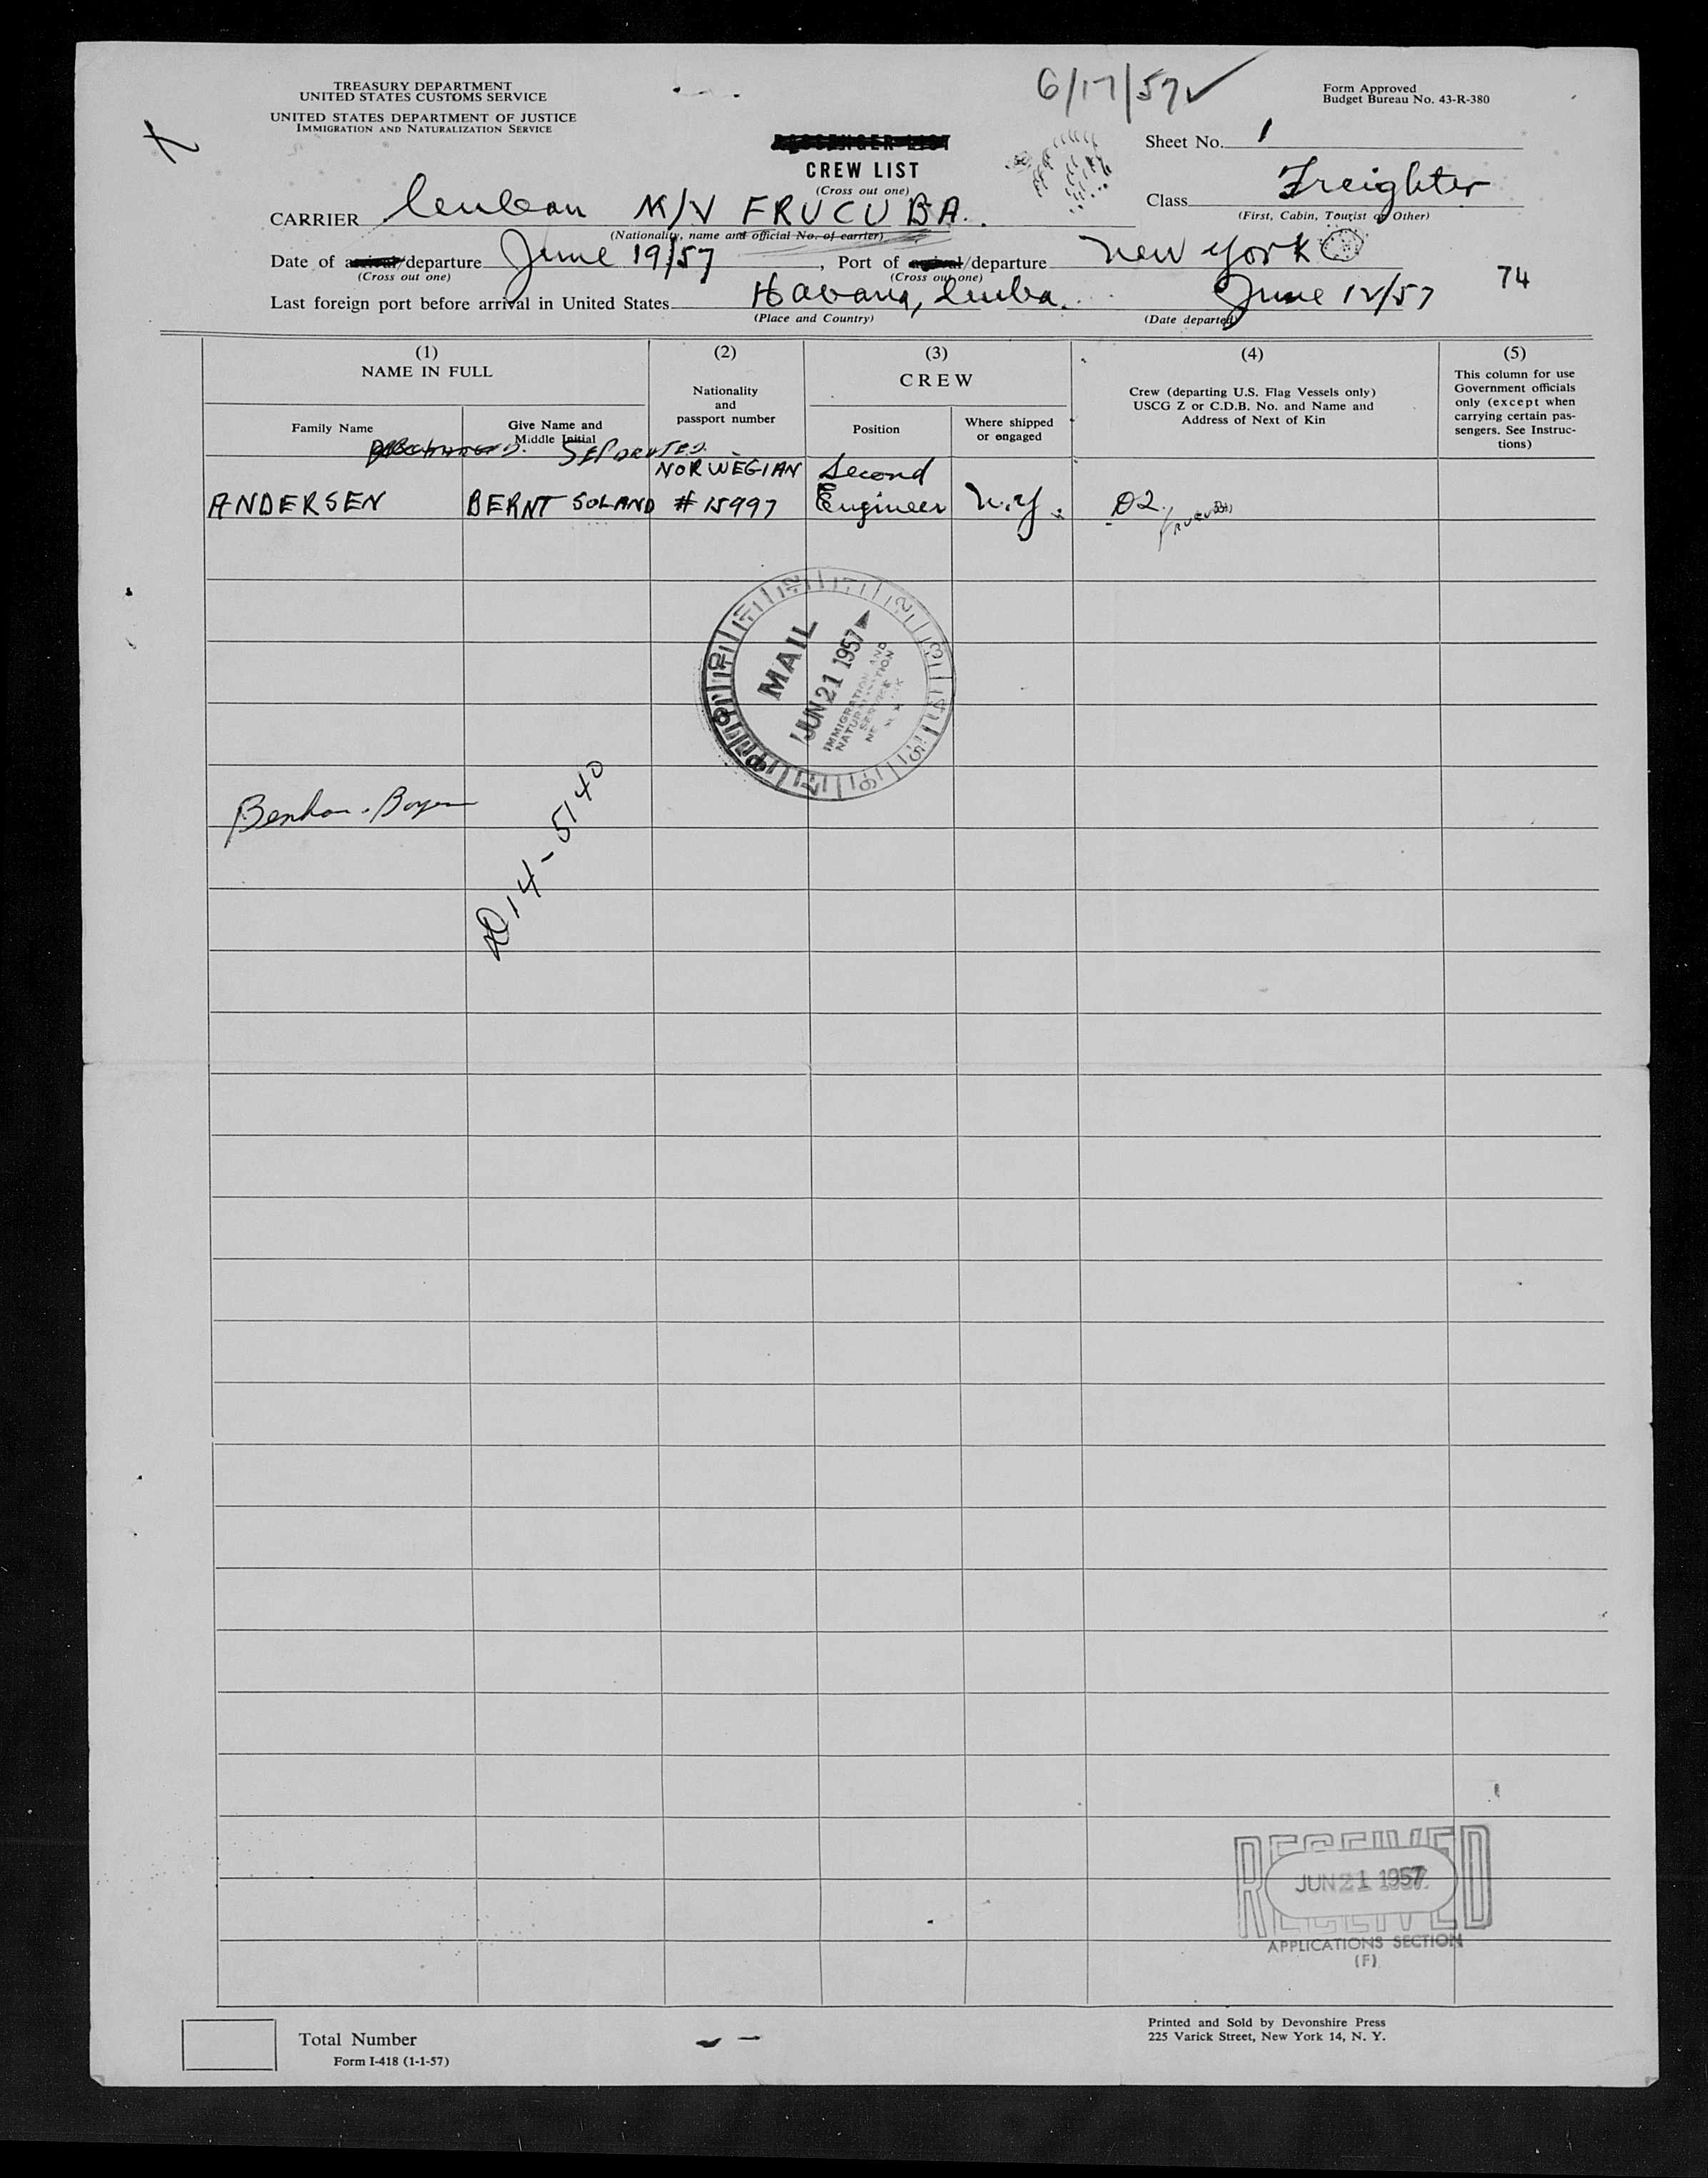 TREASURY DEPARTMENT
UNITED STATES CUSTOMS SERVICE
UNITED STATES DEPARTMENT OF JUSTICE
IMMIGRATION AND NATURALIZATION SERVICE
6/17/57 ✓
Form Approved
Budget Bureau No. 43-R-380
X
PASSENGER LIST
CREW LIST
(Cross out one)
Sheet No. 1
Class Freighter
(First, Cabin, Tourist or Other)
CARRIER Cuban M/V FRUCUBA.
(Nationality, name and official No. of carrier)
Date of arrival/departure June 19/57, Port of arrival/departure New York
(Cross out one) (Cross out one)
74
Last foreign port before arrival in United States Habana, Cuba. June 12/57
(Place and Country) (Date departed)
(1)
NAME IN FULL
Family Name
Give Name and
Middle Initial
(2)
Nationality
and
passport number
(3)
CREW
Position
Where shipped
or engaged
(4)
Crew (departing U.S. Flag Vessels only)
USCG Z or C.D.B. No. and Name and
Address of Next of Kin
(5)
This column for use
Government officials
only (except when
carrying certain pas-
sengers. See Instruc-
tions)
SEPARATED.
NORWEGIAN Second
ANDERSEN BERNT SOLAND # 15997 Engineer N.Y. D2
MAIL
JUN 21 1957
IMMIGRATION AND
NATURALIZATION
SERVICE
14-5140
RECEIVED
JUN 21 1957
RECEIVED
APPLICATIONS SECTION
(F)
Total Number
Form I-418 (1-1-57)
Printed and Sold by Devonshire Press
225 Varick Street, New York 14, N. Y.